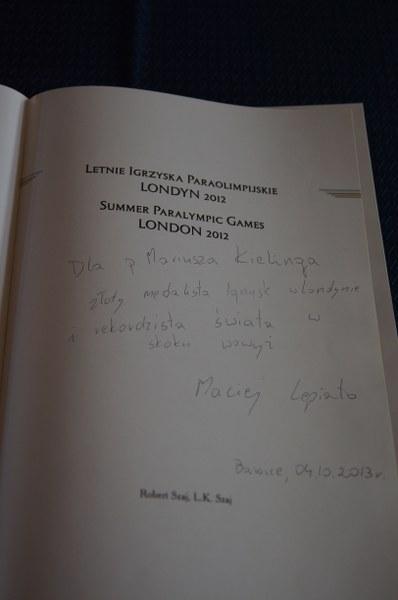 LETNIE IGRZYSKA PARAOLIMPIJSKIE
LONDYN 2012
SUMMER PARALYMPIC GAMES
LONDON 2012
Dla p Mariusza Kielinga
złoty medalista Igrzysk w Londynie
i rekordzista świata w
skoku wzwyż
Maciej Lepiato
04.10.2013r.
Robert Szaj, L.K. Szaj